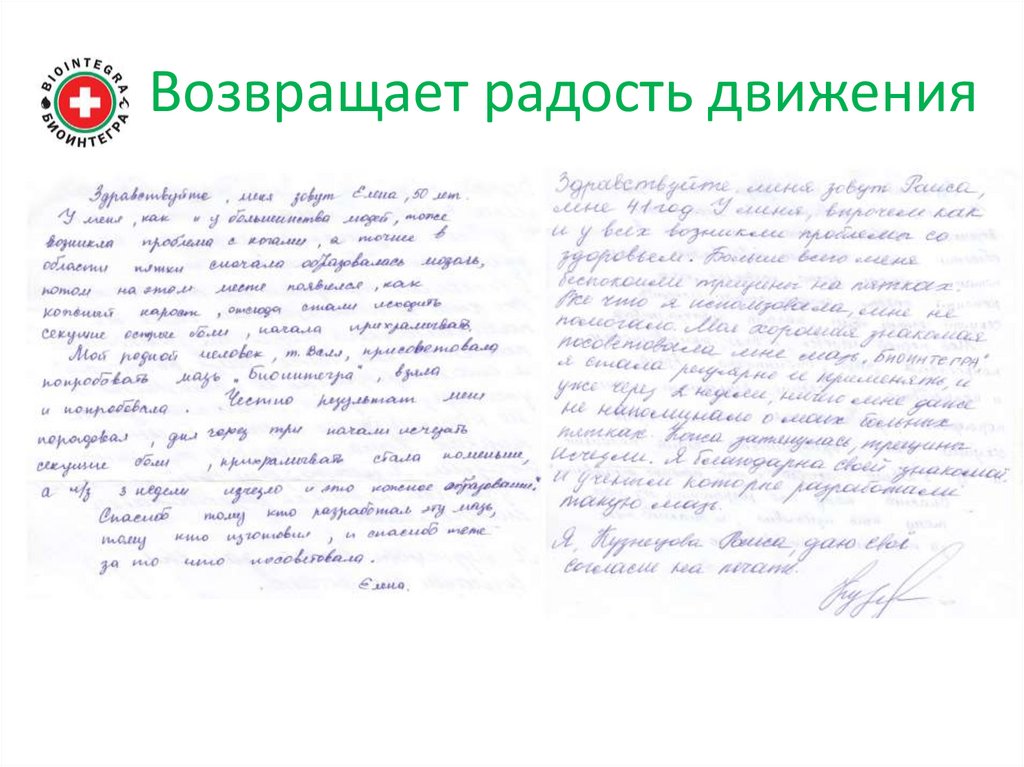 BIOINTEGRA
БИОИНТЕГРА
Возвращает радость движения
Здравствуйте, меня зовут Елена, 50 лет.
У меня, как и у большинства людей, тоже
возникла проблема с ногами, а точнее в
области пятки сначала образовалась мозоль,
потом на этом месте появился, как
кожный нарост, отсюда стали исходить
секущие острые боли, начала прихрамывать.
Мой родной человек, т. Валя, присоветовала
попробовать мазь „Биоинтегра", взяла
и попробовала. Честно результат меня
порадовал, дня через три начали исчезать
секущие боли, прихрамывать стала поменьше,
а ч/з 3 недели исчезло и это кожное образование.
Спасибо тому кто разработал эту мазь,
тому кто изготовил, и спасибо тете
за то что посоветовала.
Елена.
Здравствуйте, меня зовут Раиса,
мне 41 год. У меня, впрочем как
и у всех возникли проблемы со
здоровьем. Больше всего меня
беспокоили трещины на пятках.
Все что я использовала, мне не
помогало. Моя хорошая знакомая
посоветовала мне мазь „Биоинтегра"
я стала регулярно ее применять, и
уже через 2 недели, ничто мне даже
не напоминало о моих больных
пятках. Кожа затянулась, трещины
исчезли. Я благодарна своей знакомой
и учёным которые разработали
такую мазь.
Я, Кузнецова Раиса, даю своё
согласие на печать.